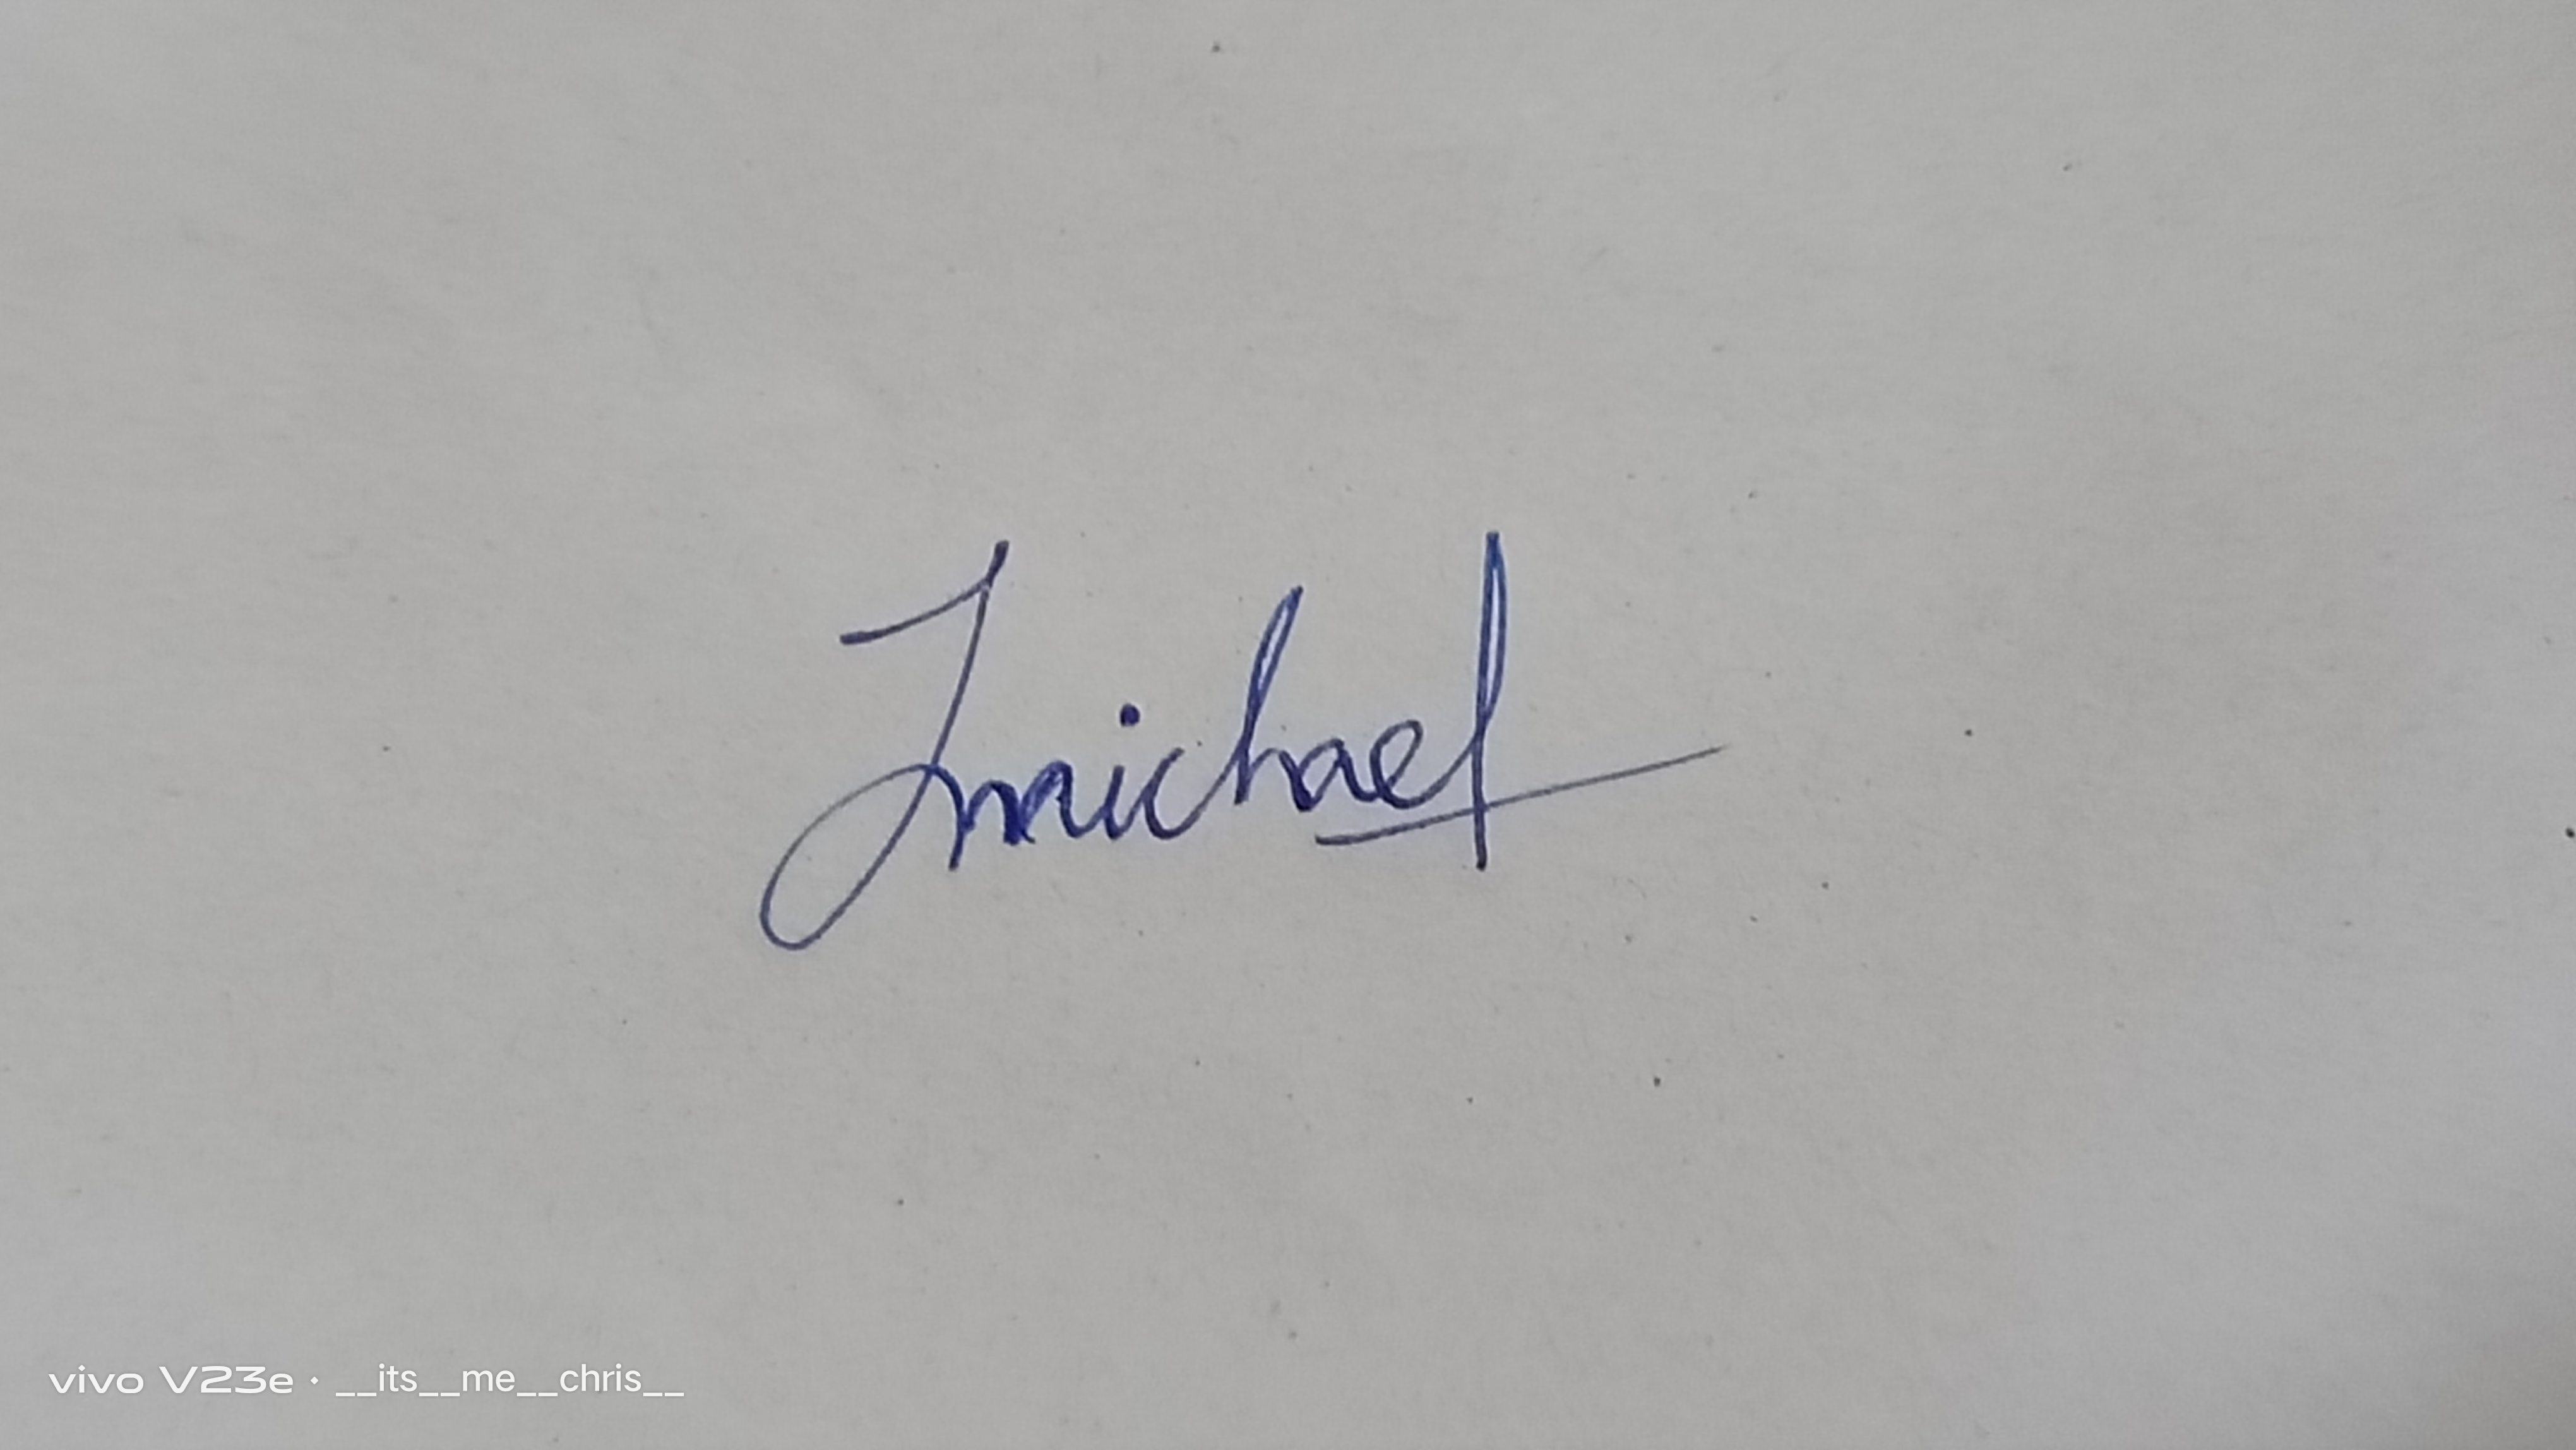 Jmichael
vivo V23e · __its__me__chris__